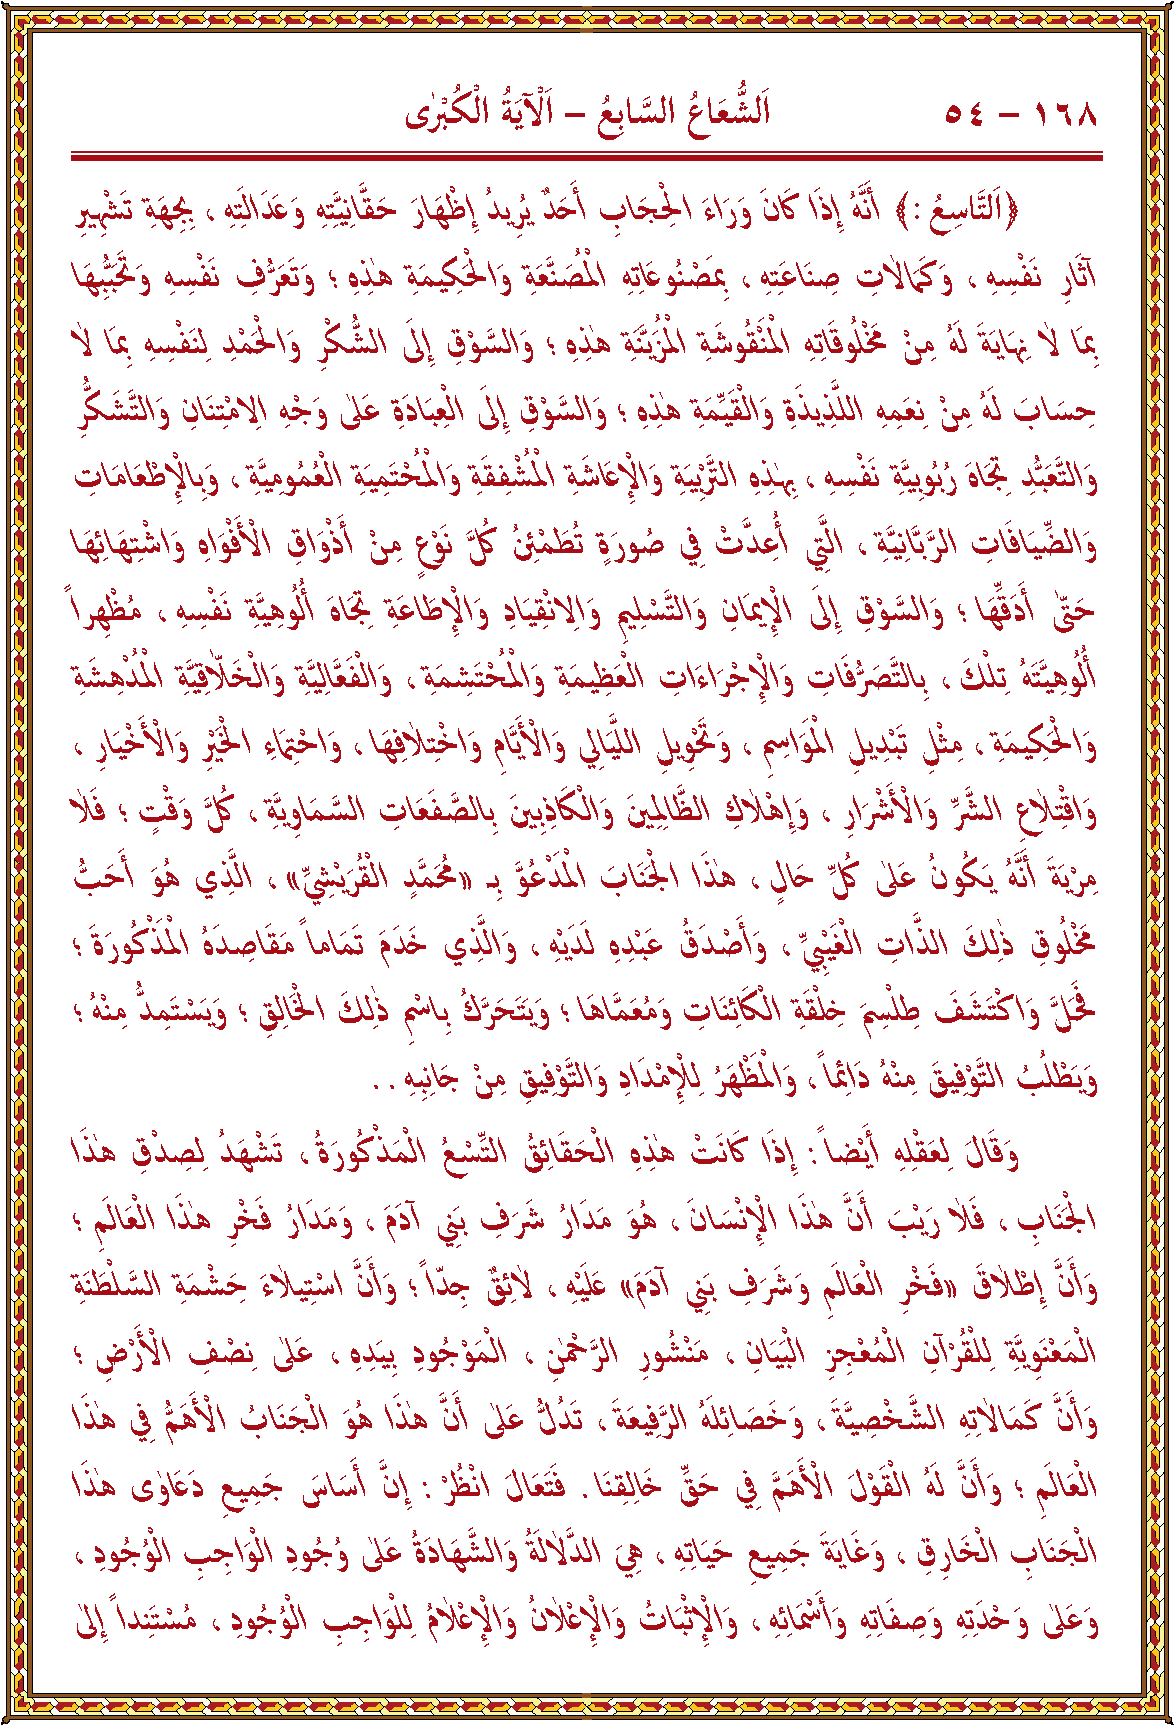 ١٦٨ – ٥٤ اَلشُّعَاعُ السَّابِعُ – اَلْآيَةُ الْكُبْرٰى
﴿اَلتَّاسِعُ :﴾ أَنَّهُ إِذَا كَانَ وَرَاءَ الْحِجَابِ أَحَدٌ يُرِيدُ إِظْهَارَ حَقَّانِيَّتِهِ وَعَدَالَتِهِ ، بِجِهَةِ تَشْهِيرِ
آثَارِ نَفْسِهِ ، وَكَمَالاَتِ صِنَاعَتِهِ ، بِمَصْنُوعَاتِهِ الْمُصَنَّعَةِ وَالْحَكِيمَةِ هٰذِهِ ؛ وَتَعَرُّفِ نَفْسِهِ وَتَحَبُّبِهَا
بِمَا لاَ نِهَايَةَ لَهُ مِنْ مَخْلُوقَاتِهِ الْمَنْقُوشَةِ الْمُزَيَّنَةِ هٰذِهِ ؛ وَالسَّوْقِ إِلَى الشُّكْرِ وَالْحَمْدِ لِنَفْسِهِ بِمَا لاَ
حِسَابَ لَهُ مِنْ نِعَمِهِ اللَّذِيذَةِ وَالْقَيِّمَةِ هٰذِهِ ؛ وَالسَّوْقِ إِلَى الْعِبَادَةِ عَلٰى وَجْهِ الِامْتِنَانِ وَالتَّشَكُّرِ
وَالتَّعَبُّدِ تِجَاهَ رُبُوبِيَّةِ نَفْسِهِ ، بِهٰذِهِ التَّرْبِيَةِ وَالْإِعَاشَةِ الْمُشْفِقَةِ وَالْمُحْتَمِيَةِ الْعُمُومِيَّةِ ، وَبِالْإِطْعَامَاتِ
وَالضِّيَافَاتِ الرَّبَّانِيَّةِ ، الَّتِي أُعِدَّتْ فِي صُورَةٍ تُطَمْئِنُ كُلَّ نَوْعٍ مِنْ أَذْوَاقِ الْأَفْوَاهِ وَاشْتِهَائِهَا
حَتّٰى أَدَقِّهَا ؛ وَالسَّوْقِ إِلَى الْإِيمَانِ وَالتَّسْلِيمِ وَالِانْقِيَادِ وَالْإِطَاعَةِ تِجَاهَ أُلُوهِيَّةِ نَفْسِهِ ، مُظْهِراً
أُلُوهِيَّتَهُ تِلْكَ ، بِالتَّصَرُّفَاتِ وَالْإِجْرَاءَاتِ الْعَظِيمَةِ وَالْمُحْتَشِمَةِ ، وَالْفَعَّالِيَّةِ وَالْخَلَّاقِيَّةِ الْمُدْهِشَةِ
وَالْحَكِيمَةِ ، مِثْلِ تَبْدِيلِ الْمَوَاسِمِ ، وَتَحْوِيلِ اللَّيَالِي وَالْأَيَّامِ وَاخْتِلاَفِهَا ، وَاحْتِمَاءِ الْخَيْرِ وَالْأَخْيَارِ ،
وَاقْتِلاَعِ الشَّرِّ وَالْأَشْرَارِ ، وَإِهْلاَكِ الظَّالِمِينَ وَالْكَاذِبِينَ بِالصَّفَعَاتِ السَّمَاوِيَّةِ ، كُلَّ وَقْتٍ ؛ فَلاَ
مِرْيَةَ أَنَّهُ يَكُونُ عَلٰى كُلِّ حَالٍ ، هٰذَا الْجَنَابَ الْمَدْعُوَّ بِـ «مُحَمَّدٍ الْقُرَيْشِيِّ» ، الَّذِي هُوَ أَحَبُّ
مَخْلُوقِ ذٰلِكَ الذَّاتِ الْغَيْبِيِّ ، وَأَصْدَقُ عَبْدِهِ لَدَيْهِ ، وَالَّذِي خَدَمَ تَمَاماً مَقَاصِدَهُ الْمَذْكُورَةَ ؛
فَحَلَّ وَاكْتَشَفَ طِلْسِمَ خِلْقَةِ الْكَائِنَاتِ وَمُعَمَّاهَا ؛ وَيَتَحَرَّكُ بِاسْمِ ذٰلِكَ الْخَالِقِ ؛ وَيَسْتَمِدُّ مِنْهُ ؛
وَيَطْلُبُ التَّوْفِيقَ مِنْهُ دَائِماً ، وَالْمَظْهَرُ لِلْإِمْدَادِ وَالتَّوْفِيقِ مِنْ جَانِبِهِ ..
وَقَالَ لِعَقْلِهِ أَيْضاً : إِذَا كَانَتْ هٰذِهِ الْحَقَائِقُ التِّسْعُ الْمَذْكُورَةُ ، تَشْهَدُ لِصِدْقِ هٰذَا
الْجَنَابِ ، فَلاَ رَيْبَ أَنَّ هٰذَا الْإِنْسَانَ ، هُوَ مَدَارُ شَرَفِ بَنِي آدَمَ ، وَمَدَارُ فَخْرِ هٰذَا الْعَالَمِ ؛
وَأَنَّ إِطْلاَقَ «فَخْرِ الْعَالَمِ وَشَرَفِ بَنِي آدَمَ» عَلَيْهِ ، لاَئِقٌ جِدّاً ؛ وَأَنَّ اسْتِيلاَءَ حَشْمَةِ السَّلْطَنَةِ
الْمَعْنَوِيَّةِ لِلْقُرْآنِ الْمُعْجِزِ الْبَيَانِ ، مَنْشُورِ الرَّحْمٰنِ ، الْمَوْجُودِ بِيَدِهِ ، عَلٰى نِصْفِ الْأَرْضِ ؛
وَأَنَّ كَمَالاَتِهِ الشَّخْصِيَّةَ ، وَخَصَائِلَهُ الرَّفِيعَةَ ، تَدُلُّ عَلٰى أَنَّ هٰذَا هُوَ الْجَنَابُ الْأَهَمُّ فِي هٰذَا
الْعَالَمِ ؛ وَأَنَّ لَهُ الْقَوْلَ الْأَهَمَّ فِي حَقِّ خَالِقِنَا . فَتَعَالَ انْظُرْ : إِنَّ أَسَاسَ جَمِيعِ دَعَاوٰى هٰذَا
الْجَنَابِ الْخَارِقِ ، وَغَايَةَ جَمِيعِ حَيَاتِهِ ، هِيَ الدَّلاَلَةُ وَالشَّهَادَةُ عَلٰى وُجُودِ الْوَاجِبِ الْوُجُودِ ،
وَعَلٰى وَحْدَتِهِ وَصِفَاتِهِ وَأَسْمَائِهِ ، وَالْإِثْبَاتُ وَالْإِعْلاَنُ وَالْإِعْلاَمُ لِلْوَاجِبِ الْوُجُودِ ، مُسْتَنِداً إِلٰى